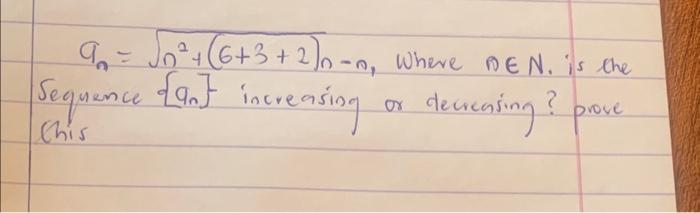 aₙ = √n² + (6+3+2)n - n, Where n ∈ N. is the
Sequence {aₙ} increasing or decreasing? prove
this